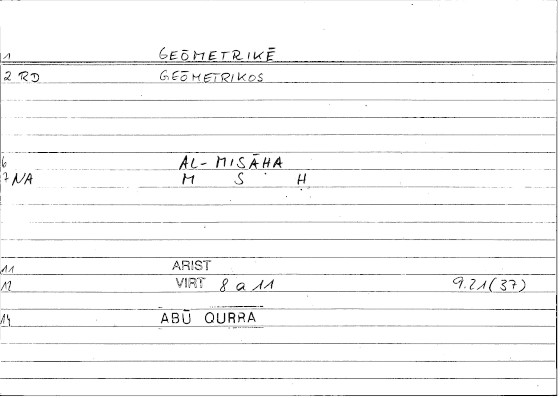 1 GEŌMETRIKĒ
2 RD GEŌMETRIKOS
6 AL-MISĀḤA
7 NA M S Ḥ
11 ARIST
12 VIRT 8 a 11 9.21(37)
14 ABŪ QURRA